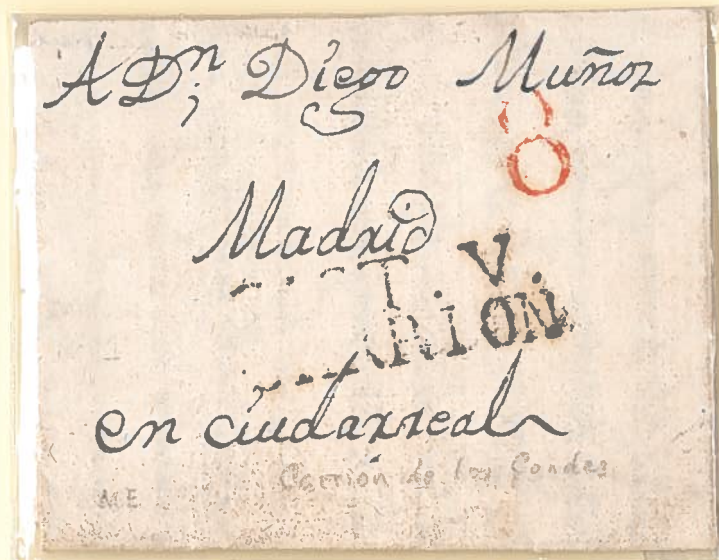 A Dn; Diego Muñoz
8
Madrid
T. V
ARiON.
en ciudarreal
Carrión de los Condes
ME